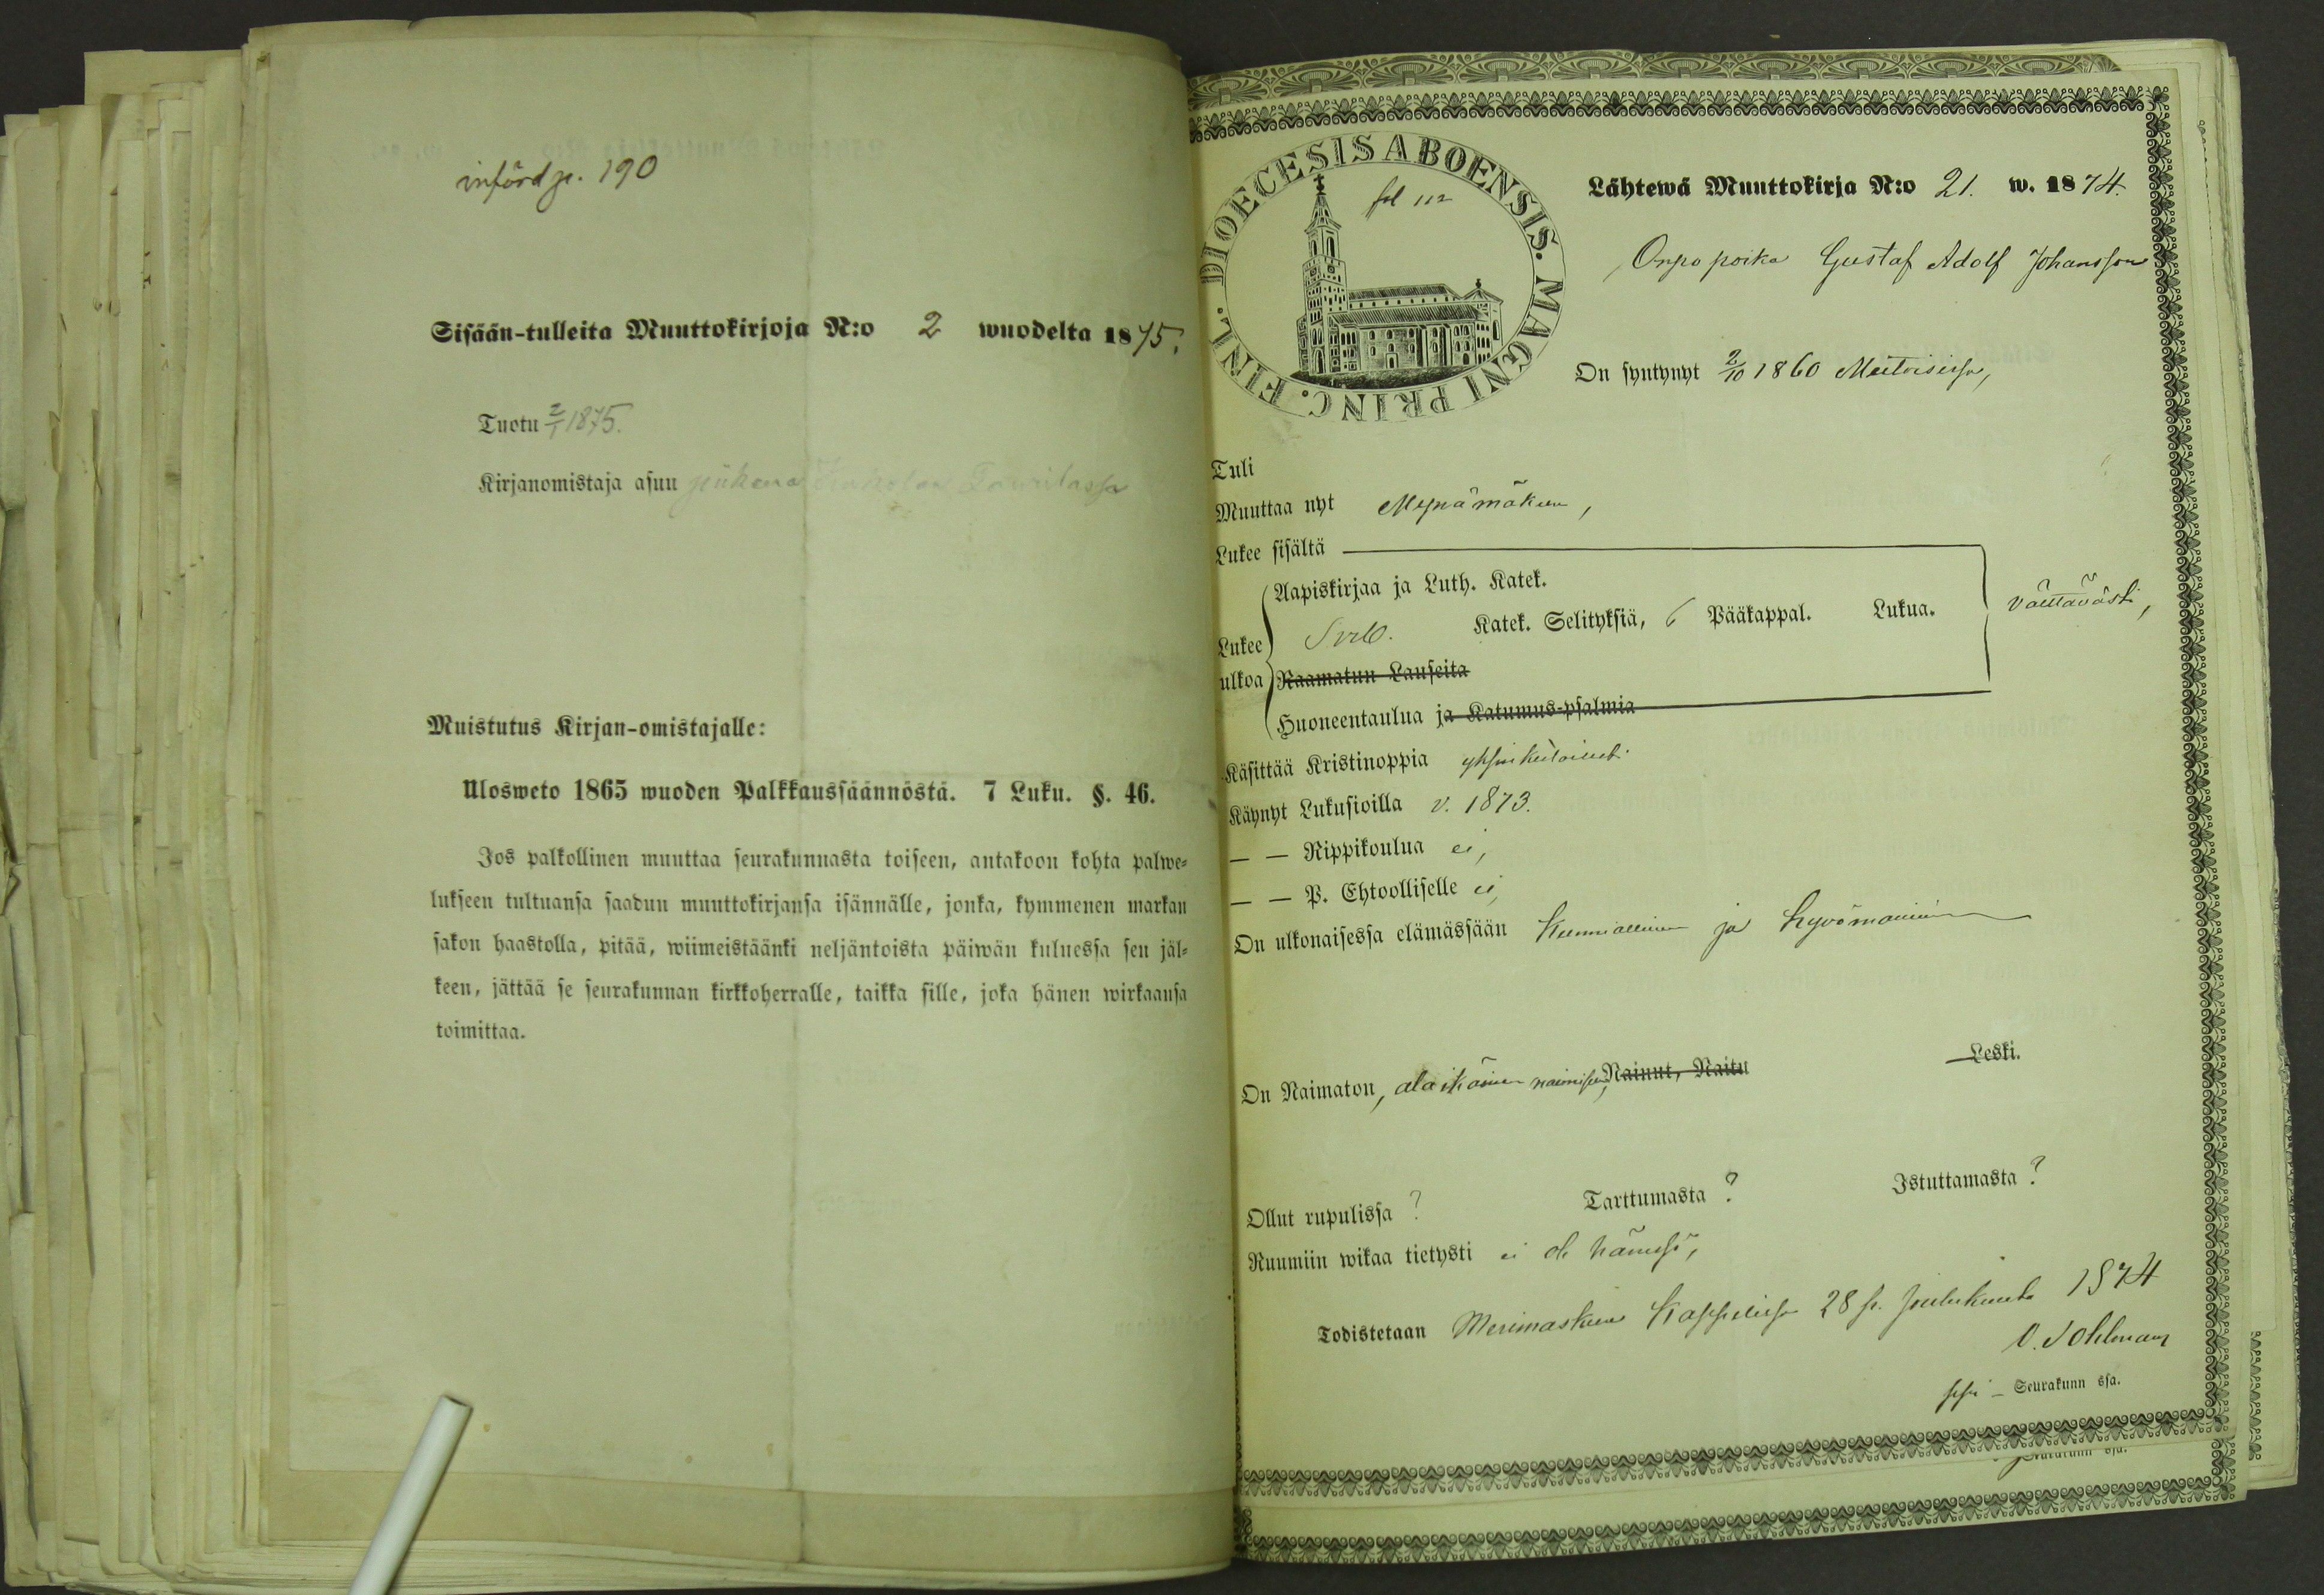 införd p. 190
Sisään-tulleita Muuttokirjoja N:o 2 wuodelta 1875.
Tuotu 2/1 1875.
Kirjanomistaja asuu
Muistutus Kirjan-omistajalle:
Ulosweto 1865 wuoden Palkkaussäännöstä. 7 Luku. §. 46.
Jos palkollinen muuttaa seurakunnasta toiseen, antakoon kohta palwe=
lukseen tultuansa saadun muuttokirjansa isännälle, jonka, kymmenen markan
sakon haastolla, pitää, wiimeistäänki neljäntoista päiwän kuluessa sen jäl=
keen, jättää se seurakunnan kirkkoherralle, taikka sille, joka hänen wirkaansa
toimittaa.
DIOECESIS ABOENSIS. MAGNI PRINC. FINL.
fol 112
Lähtewä Muuttokirja N:o 21. w. 1874.
Orpo poika Gustaf Adolf Johansson
On syntynyt 2/10 1860
Tuli
Muuttaa nyt Mynämäkeen,
Lukee sisältä
Aapiskirjaa ja Luth. Katek.
Lukee ulkoa
Katek. Selityksiä, 6 Pääkappal. Lukua.
välttävästi,
Raamatun Lauseita
Huoneentaulua ja Katumus-psalmia
Käsittää Kristinoppia yksinkertaisesti
Käynyt Lukusioilla v. 1873.
— — Rippikoulua ei,
— — P. Ehtoolliselle ei,
On ulkonaisessa elämässään kunniallinen ja hyvämaininen
On Naimaton, alaikäinen naimiseen, Nainut, Naitu Leski.
Ollut rupulissa ? Tarttumasta ? Istuttamasta ?
Ruumiin wikaa tietysti ei ole hänessä,
Todistetaan Merimaskun Kappelissa 28 p. joulukuuta 1874
Seurakunn ssa.